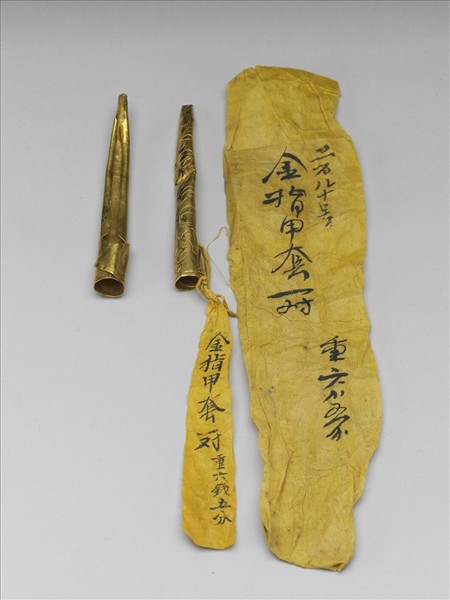 百八十号
金指甲套一对
重六 五分
金指甲套一对
重六錢五分